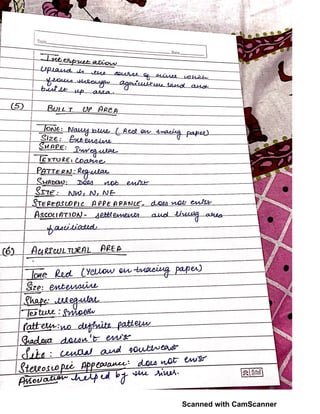 Date
Interpretation
Upland is the source of river which
flows through agriculture land and
built up area.
(5) BUILT UP AREA
TONE: Navy blue (Red on tracing paper)
SIZE: Extensive
SHAPE: Irregular
TEXTURE: Coarse
PATTERN: Regular
SHADOW: Does not exist
SITE: NW, N, NE
STEREOSCOPIC APPEARANCE: does not exist
ASSOCIATION- settlements and living area
(6) AGRICULTURAL AREA
Tone Red (Yellow on tracing paper)
Size: extensive
Shape: irregular
Texture: Smooth
Pattern: no definite pattern
Shadow doesn't exist
Site: central and southward
Stereoscopic Appearance: does not exist
Association- helped by the river.
Scanned with CamScanner